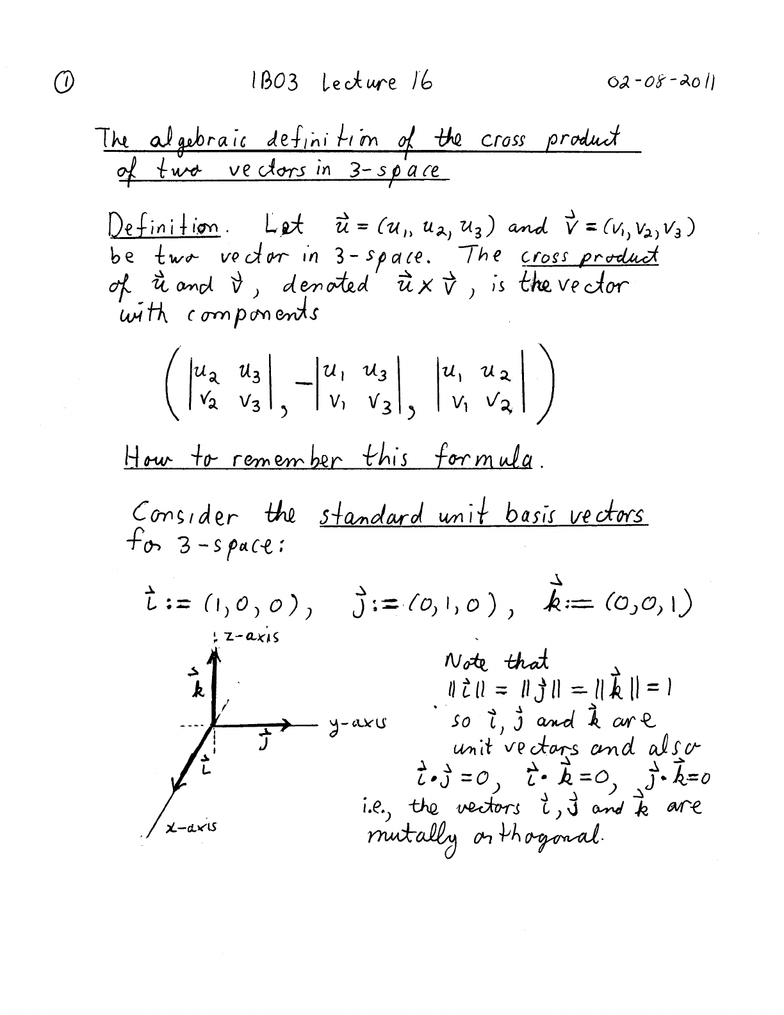 ① 1B03 Lecture 16 02-08-2011
The algebraic definition of the cross product
of two vectors in 3-space
Definition. Let u⃗ = (u₁, u₂, u₃) and v⃗ = (v₁, v₂, v₃)
be two vector in 3-space. The cross product
of u⃗ and v⃗, denoted u⃗ × v⃗, is the vector
with components
( |u₂ u₃| , -|u₁ u₃| , |u₁ u₂| )
|v₂ v₃| |v₁ v₃| |v₁ v₂|
How to remember this formula.
Consider the standard unit basis vectors
for 3-space:
i⃗ := (1, 0, 0), j⃗ := (0, 1, 0), k⃗ := (0, 0, 1)
z-axis
k⃗
j⃗
y-axis
i⃗
x-axis
Note that
||i⃗|| = ||j⃗|| = ||k⃗|| = 1
so i⃗, j⃗ and k⃗ are
unit vectors and also
i⃗ · j⃗ = 0, i⃗ · k⃗ = 0, j⃗ · k⃗ = 0
i.e., the vectors i⃗, j⃗ and k⃗ are
mutally orthogonal.